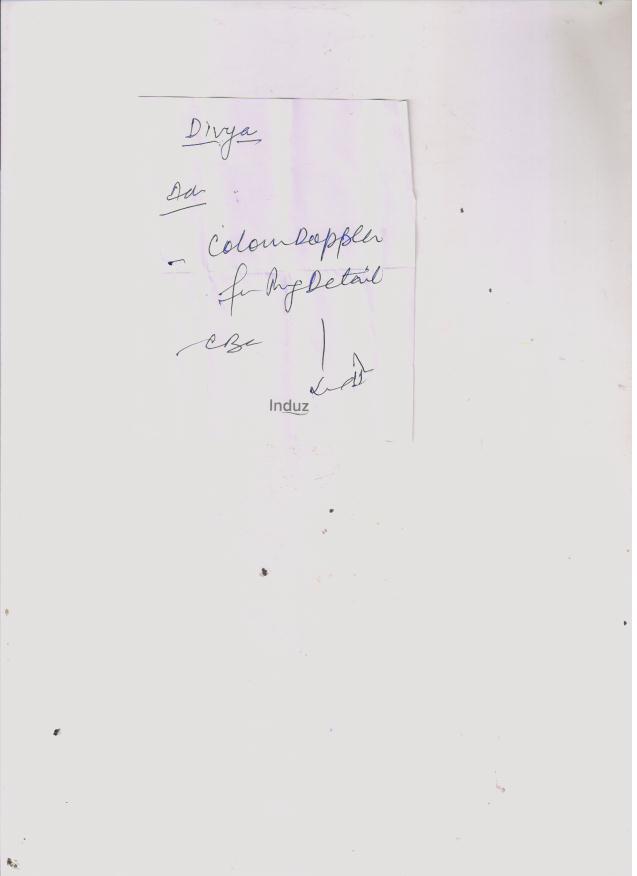 Divya
Adv
- Colour Doppler
for Preg Detail
- CBC
Induz